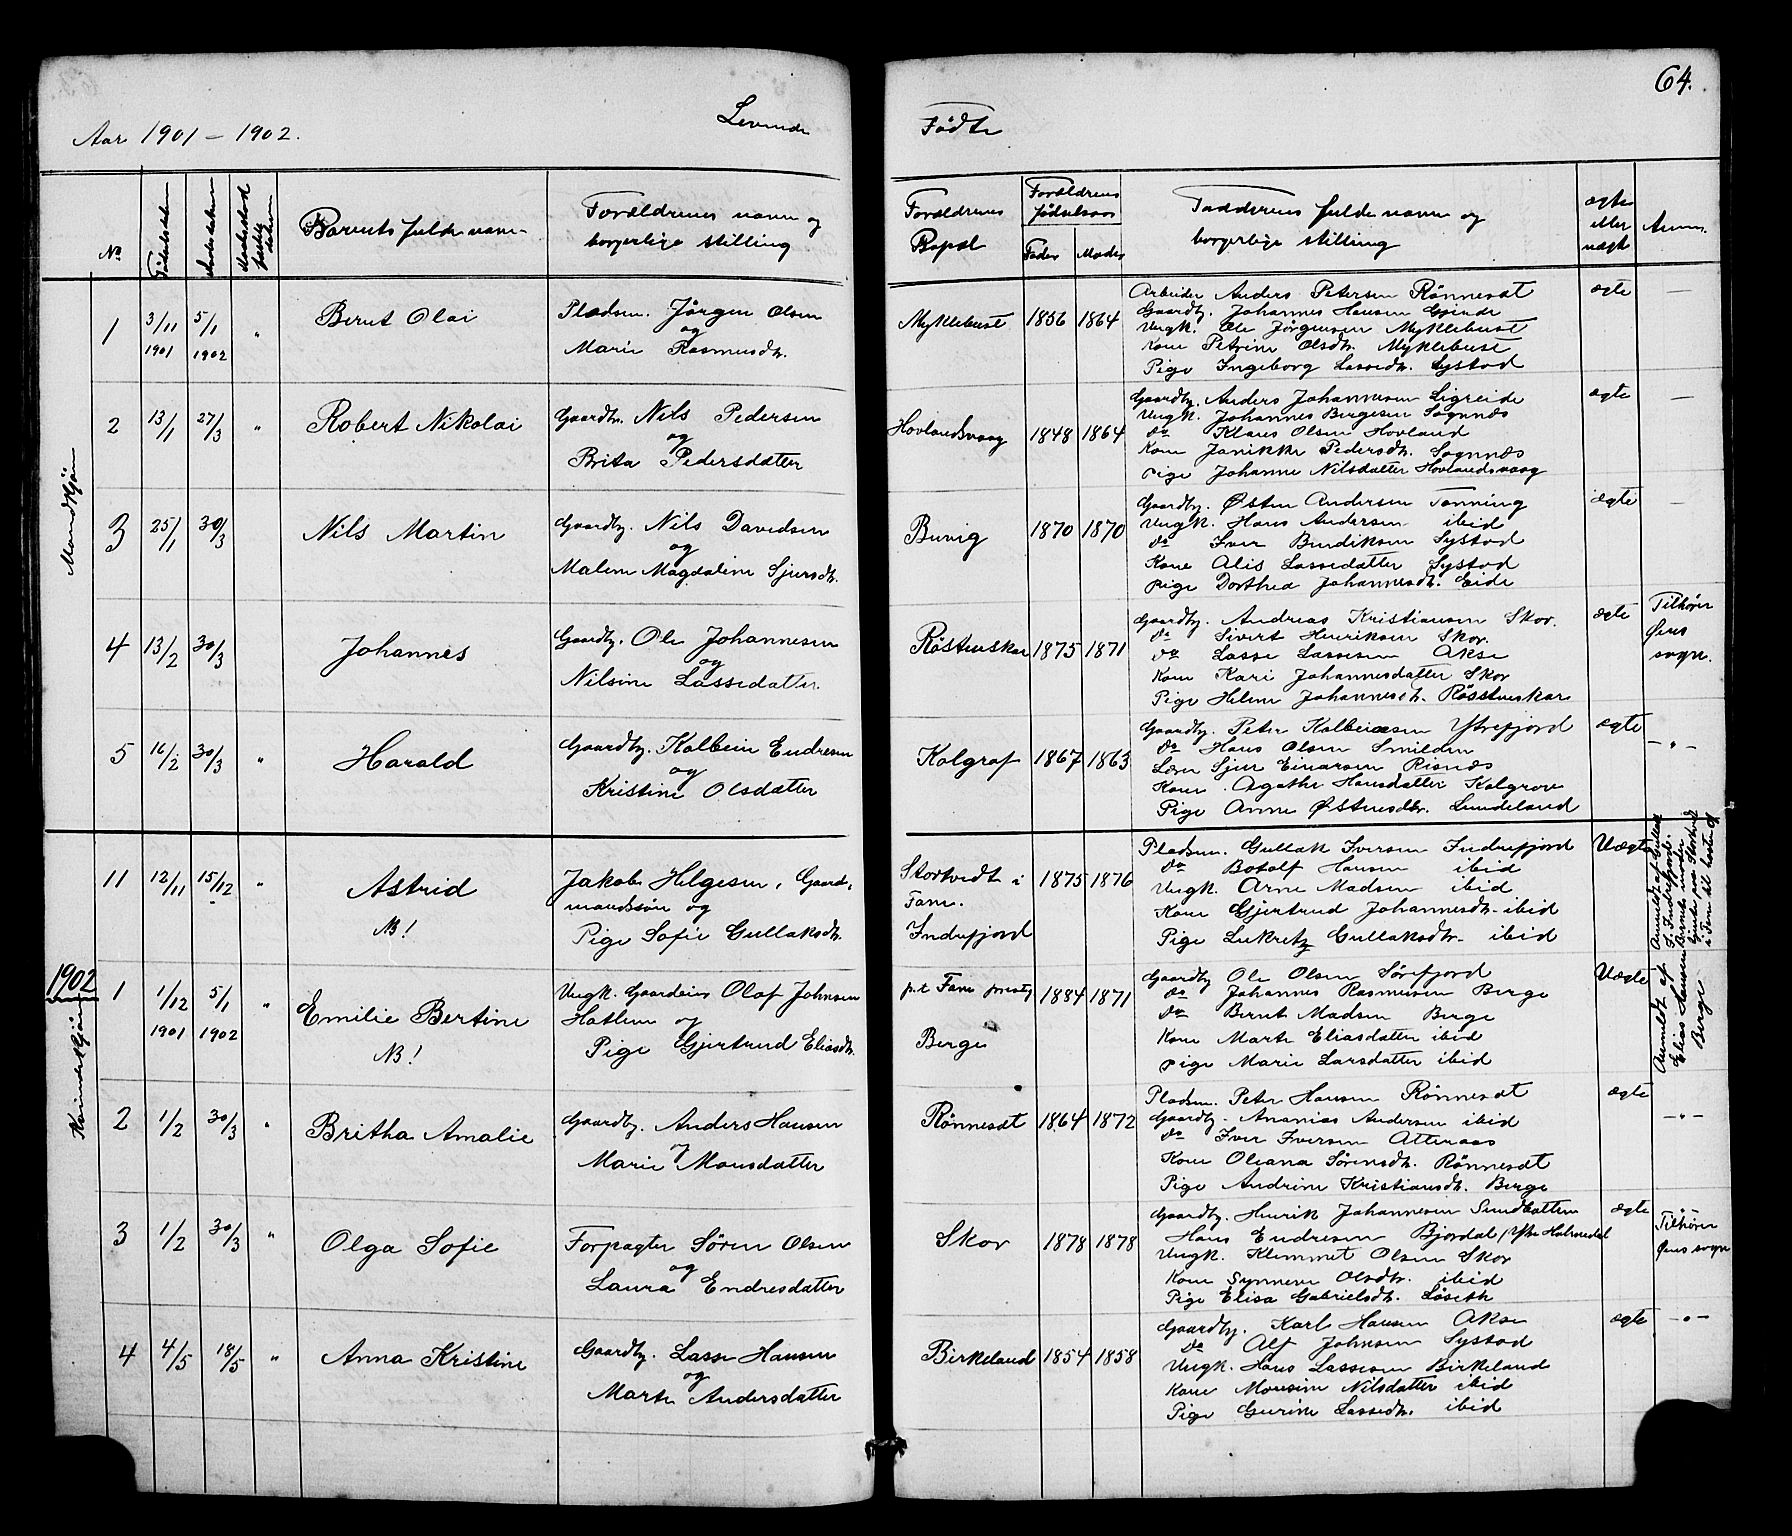 64.
Aar 1901 – 1902.
Levende
Fødte
No
Fødselsdatum
Daabsdatum
Barnets fulde navn
Forældrenes navne og
borgerlige stilling
Forældrenes
Bopæl
Forældrenes
fødselsaar
Fader
Moder
Faddernes fulde navne og
borgerlige stilling
ægte
eller
uægte
Anm.
Mandkjøn
1
3/11 1901
5/1 1902
"
Bernt Olai
Pladsm. Jørgen Olsen
og
Marie Rasmusdtr.
Myklebust
1856
1864
Arbeider Anders Petersen Rønnesdt
Gaardbr. Johannes Hansen Gjeinde
Ungk. Ole Jørgensen Myklebust
Kone Petrine Olsdtr. Myklebust
Pige Ingeborg Lassedtr. Systad
ægte
—
2
13/1
27/3
"
Robert Nikolai
Gaardbr. Nils Pedersen
og
Brita Pedersdatter
Hovlandsvaag
1848
1864
Gaardbr. Anders Johannesen Ligreide
Ungk. Johannes Bergesen Sognnes
do Klaus Olsen Hovland
Kone Janikke Pedersdtr. Sognnes
Pige Johanne Nilsdatter Hovlandsvaag
ægte
—
3
25/1
30/3
Nils Martin
Gaardbr. Nils Davidsen
og
Malene Magdalene Sjursdtr.
Buvig
1870
1870
Gaardbr. Østen Andersen Tonning
Ungk. Hans Andersen ibid
do Iver Bendiksen Systad
Kone Alis Lassedatter Systad
Pige Dorthea Johannesdtr. Eide
ægte
—
4
13/2
30/3
Johannes
Gaardbr. Ole Johannesen
og
Nilsine Lassedatter.
Røstenskar
1875
1871
Gaardbr. Andreas Kristiansen Skor.
do Sivert Henriksen Skor.
do Lasse Lassesen Akse
Kone Kari Johannesdatter Skor
Pige Heline Johannesdtr. Røsstenskar
ægte
Tilhører
Øens
sogn.
5
16/2
30/3
"
Harald
Gaardbr. Kolbein Endresen
og
Kristine Olsdatter
Kolgraf
1867
1863
Gaardbr. Peter Kolbeinsen Ytrefjord
do Hans Olsen Smilden
Lærer Sjur Einarsen Risnes
Kone Agathe Hansdatter Kolgrov
Pige Anne Østensdtr. Lundeland
ægte
— " —
11
12/11
15/12
"
Astrid
NB!
Jakob Helgesen, Gaard-
mandssøn og
Pige Sofie Gullaksdtr.
Stortvedt i
Fane.
Indrefjord
1875
1876
Pladsm. Gullak Iversen Indrefjord
do Botolf Hansen ibid
Ungk. Arne Madsen ibid
Kone Gjertrud Johannesdtr. ibid
Pige Lukretz Gullaksdtr. ibid
Uægte
Anmeldt af Gullak
I. Indrefjord.
Barnets moder
1902
Kvindekjøn
1
1/12 1901
5/1 1902
"
Emilie Bertine
NB!
Ungk. Gaardeier Olaf Johnsen
Hatlem og
Pige Gjertrud Eliasdtr.
p.t. Fane prestg
Berge
1884
1871
Gaardbr Ole Olsen Sørefjord
do Johannes Rasmusen Berge
do Bernt Madsen Berge
Kone Marte Eliasdatter ibid
Pige Marie Larsdatter ibid
Uægte
Anmeldt af
Elias Hansen
Berge
2
1/2
30/3
"
Britha Amalie
Gaardbr. Anders Hansen
og
Marie Monsdatter
Rønnesdt
1864
1872
Pladsm. Peter Hansen Rønnesdt
Gaardbr. Ananias Andersen ibid
do Iver Iversen Atteraas
Kone Oleana Sørensdtr. Rønnesdt
Pige Andrine Kristiansdtr. Berge
ægte
— " —
3
1/2
30/3
"
Olga Sofie
Forpagter Søren Olsen
og
Laura Endresdatter
Skor
1878
1878
Gaardbr. Henrik Johannesen Sundbotten
Hans Endresen Bjordal, Ytre Holmedal
Ungk. Klemmet Olsen Skor
Kone Synneve Olsdtr. ibid
Pige Elisa Gabrielsdtr. Løseth
ægte
Tilhører
Øens sogn
4
4/5
18/5
"
Anna Kristine
Gaardbr. Lasse Hansen
og
Marte Andersdatter
Birkeland
1854
1858
Gaardbr. Karl Hansen Akse
Do Alf Johnsen Systad
Ungk. Hans Lassesen Birkeland
Kone Monsine Nilsdatter ibid
Pige Gurine Lassedtr. ibid
ægte
— " —